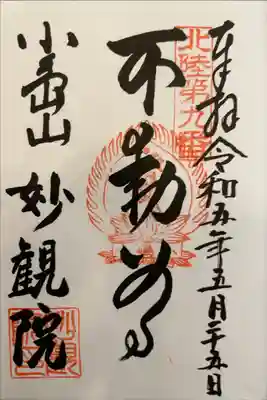 奉拝 令和五年五月二十五日
北陸第九番
不動尊
小嶋山 妙観院